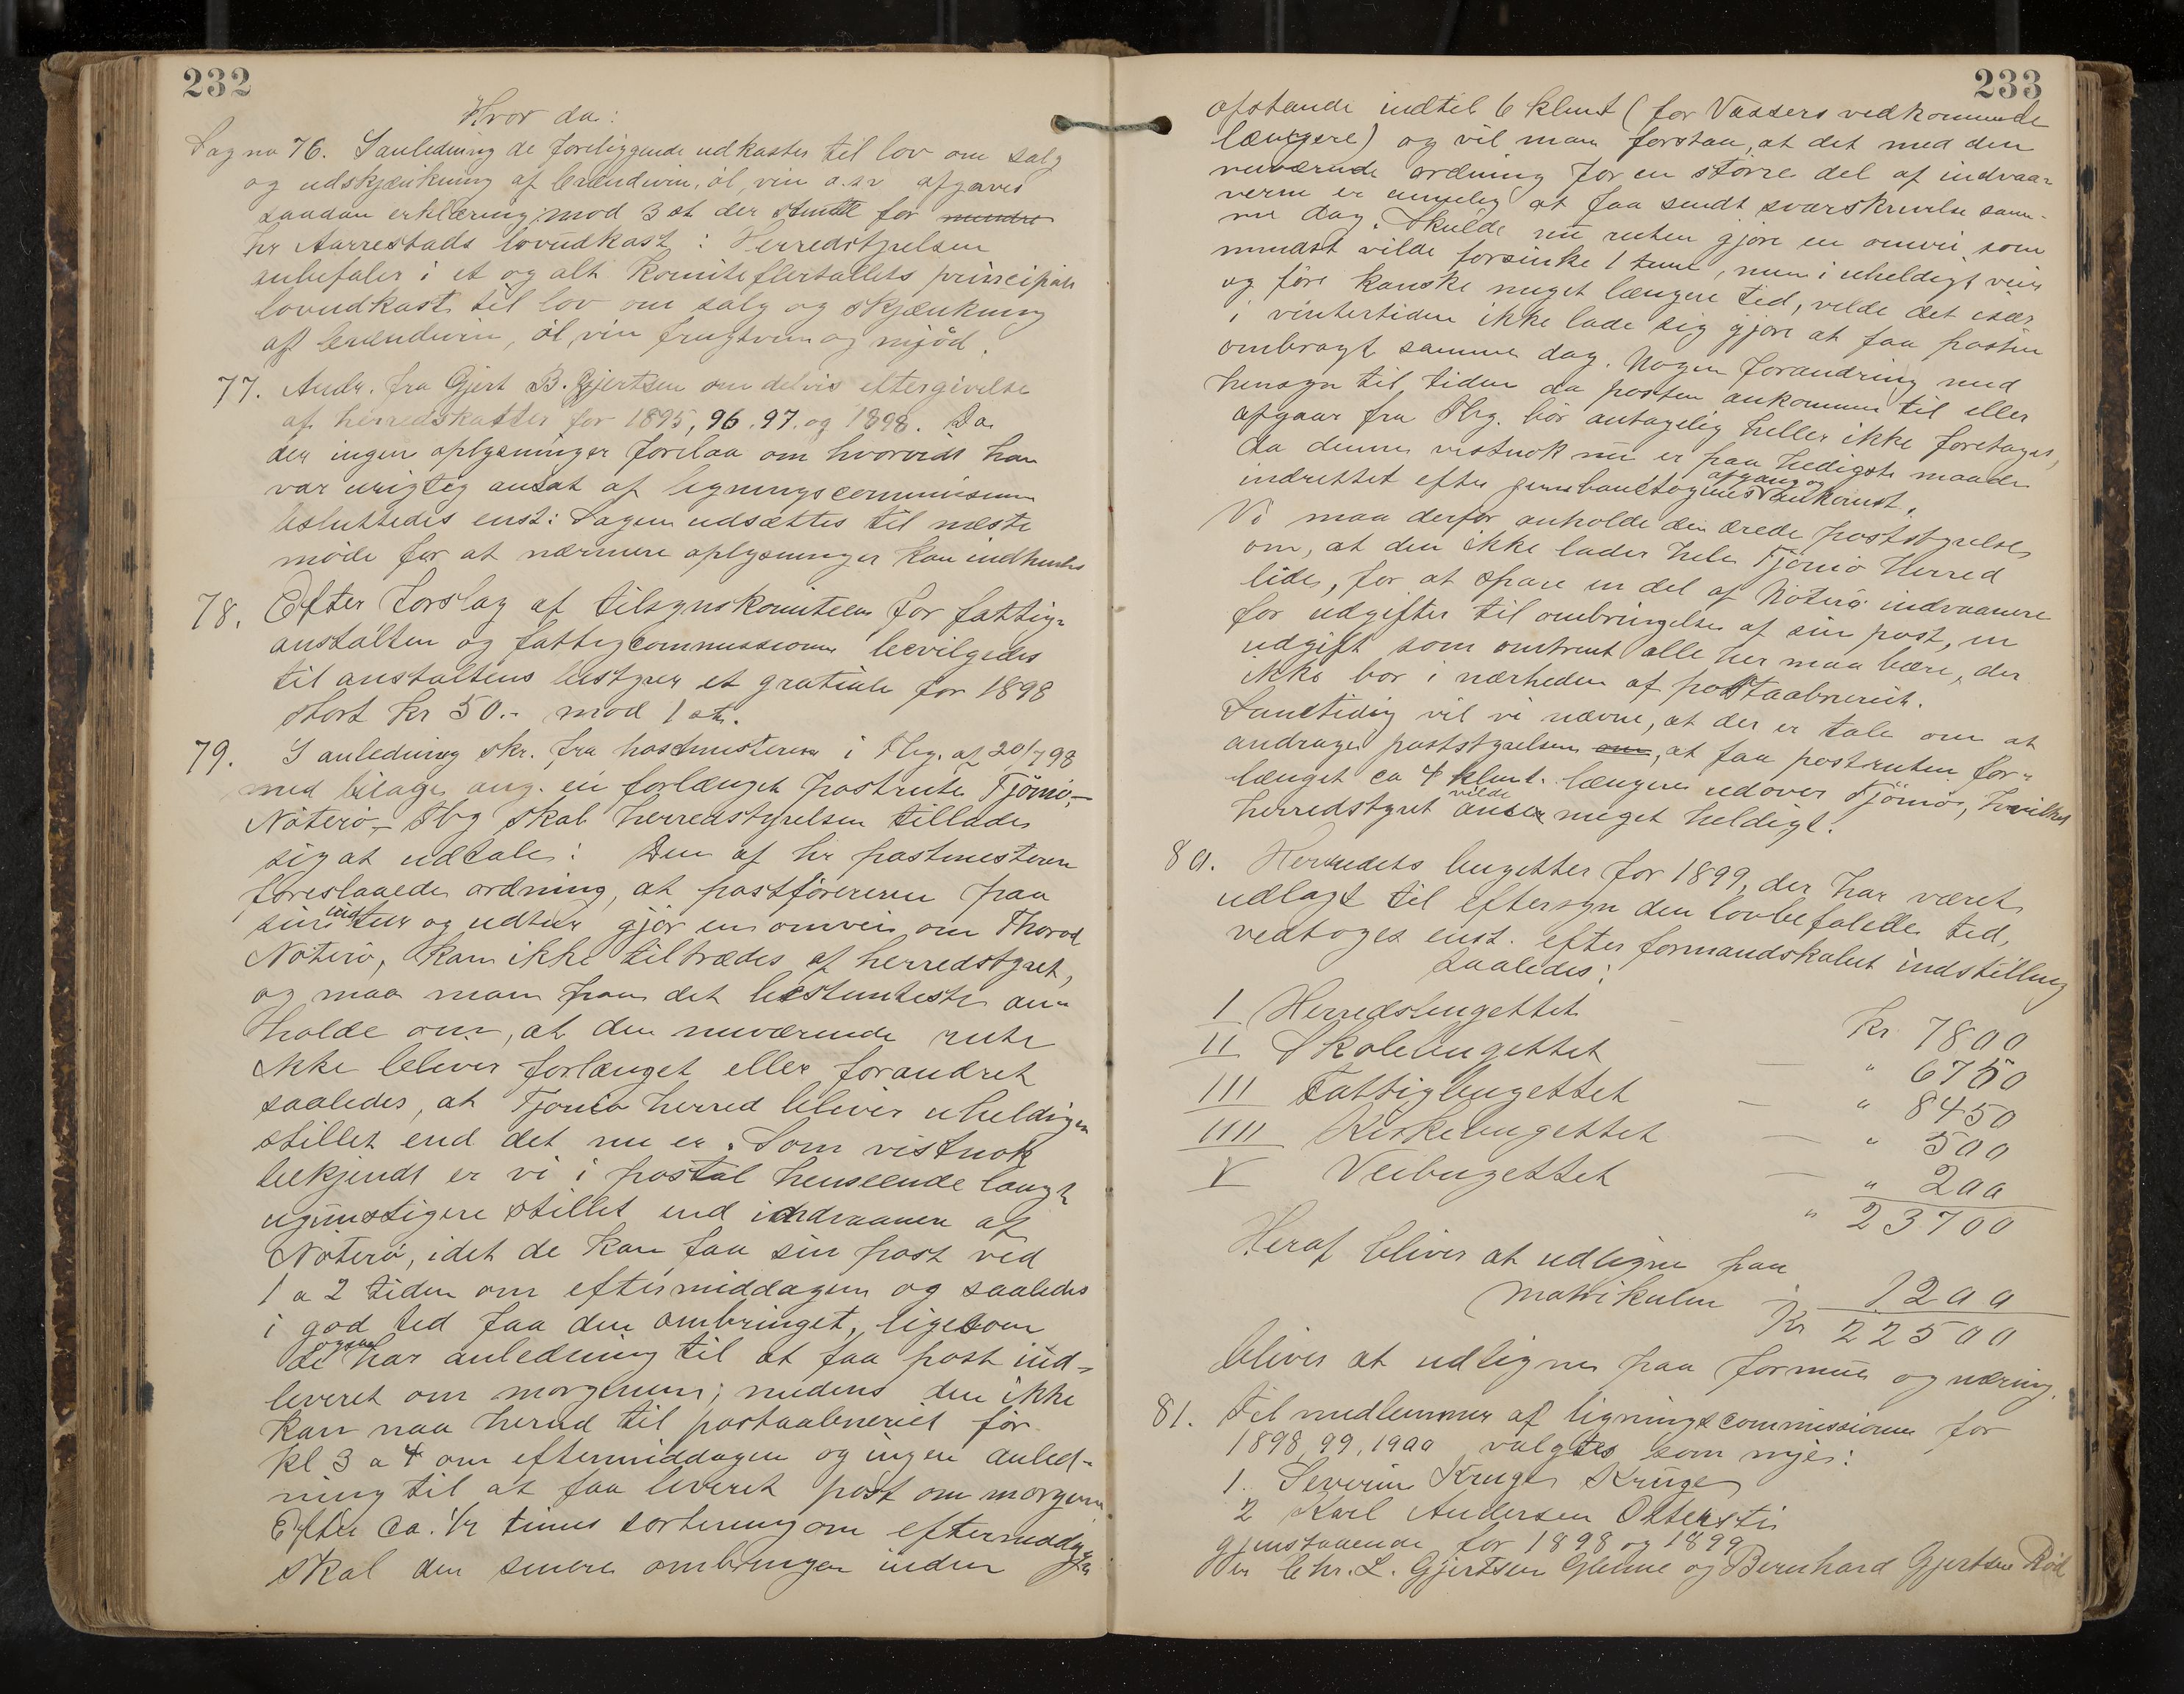 232
Hvor da:
Sag no 76. I anledning de foreliggende udkaster til lov om salg
og udskjænkning af brændevin, øl, vin o.s.v afgaves
saadan erklæring mod 3 st der stemte for mindre
hr Aarrestads lovudkast: Herredstyrelsen
anbefaler i et og alt komiteflertallets principale
lovudkast til lov om salg og skjænkning
af brændevin, øl, vin frugtvin og mjød.
77. Andr. fra Gjert B. Gjertsen om delvis eftergivelse
af herredskatter for 1895, 96. 97. og 1898. Da
der ingen oplysninger forelaa om hvorvidt han
var urigtig ansat af ligningscommissionen
besluttedes enst: Sagen udsættes til næste
møde for at nærmere oplysninger kan indhentes
78. Efter Forslag af tilsynskomiteen for fattig-
anstalten og fattigcommissionen bevilgedes
til anstaltens bestyrer et gratiale for 1898
stort kr 50.- mod 1 st.
79. I anledning skr. fra postmesteren i Tbg. af 20/7 98
med bilage ang. en forlænget postrute Tjømø,-
Nøterø,- Tbg skal herredstyrelsen tillade
sig at udtale: Den af hr postmesteren
foreslaaede ordning, at postføreren paa
sin ind tur og udtur gjør en omvei om Thorød
Nøterø, kan ikke tiltrædes af herredstyret,
og maa man paa det bestemteste an-
holde om, at den nuværende rute
ikke bliver forlænget eller forandret
saaledes, at Tjømø herred bliver uheldigere
stillet end det nu er. Som vistnok
bekjendt er vi i postal henseende langt
ugunstigere stillet end indvaanere af
Nøterø, idet de kan faa sin post ved
1 a 2 tiden om eftermiddagen og saaledes
i god tid faa den ombringet, ligesom
de ogsaa har anledning til at faa post ind-
leveret om morgenen; medens den ikke
kan naa herned til postaabneriet før
kl 3 a 4 om eftermiddagen og ingen anled-
ning til at faa leveret post om morgenen
Efter ca. 1/2 times sortering om eftermiddagen
skal den senere ombringes inden
233
afstande indtil 6 klmt (for Vassers vedkommende
længere) og vil man forstaa, at det med den
nuværende ordning for en større del af indvaa-
nerne er umulig at faa sendt svarskrivelse sam-
me dag. Skulde nu ruten gjøre en omvei, som
mindst vilde forsinke 1 time, men i uheldigt veir
og føre kanske meget længere tid, vilde det især
i vintertiden ikke lade sig gjøre at faa posten
ombragt samme dag. Nogen forandring med
hensyn til tiden da posten ankommer til eller
afgaar fra Tbg. bør antagelig heller ikke foretages,
da denne vistnok nu er paa heldigste maade
indrettet efter jernbanetogenes afgang og ankomst.
Vi maa derfor anholde den ærede poststyrelse
om, at den ikke lader hele Tjømø Herred
lide, for at spare en del af Nøterø indvaanere
for udgifter til ombringelse af sin post, en
udgift som omtrent alle her maa bære, der
ikke bor i nærheden af postaabneriet.
Samtidig vil vi nævne, at der er tale om at
andrage poststyrelsen om, at faa postruten for-
længet ca 4 klmt. længere udover Tjømø, hvilket
herredstyret vilde anse meget heldigt.
80. Herredets bugetter for 1899, der har været
udlagt til eftersyn den lovbefalede tid,
vedtoges enst. efter formandskabets indstilling
saaledes:
I Herredsbugettet - Kr 7800
II Skolebugettet — " 6750
III Fattigbugettet — " 8450
IIII Kirkebugettet — " 500
V Veibugettet — " 200
" 23700
Heraf bliver at udligne paa
matrikulen 1200
Kr 22500
bliver at udlignes paa formue og næring.
81. Til medlemmer af ligningscommissionen for
1898, 99, 1900 valgtes som nye:
1. Severin Kruge Kruge
2 Karl Andersen Østersti
gjenstaaende for 1898 og 1899
er Chr. L. Gjertsen Glenne og Bernhard Gjertsen Rød